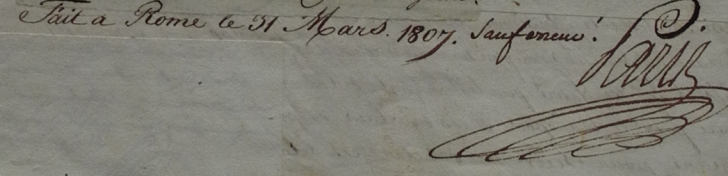 Fait a Rome le 31 Mars. 1807. Sauf erreur!
Paris